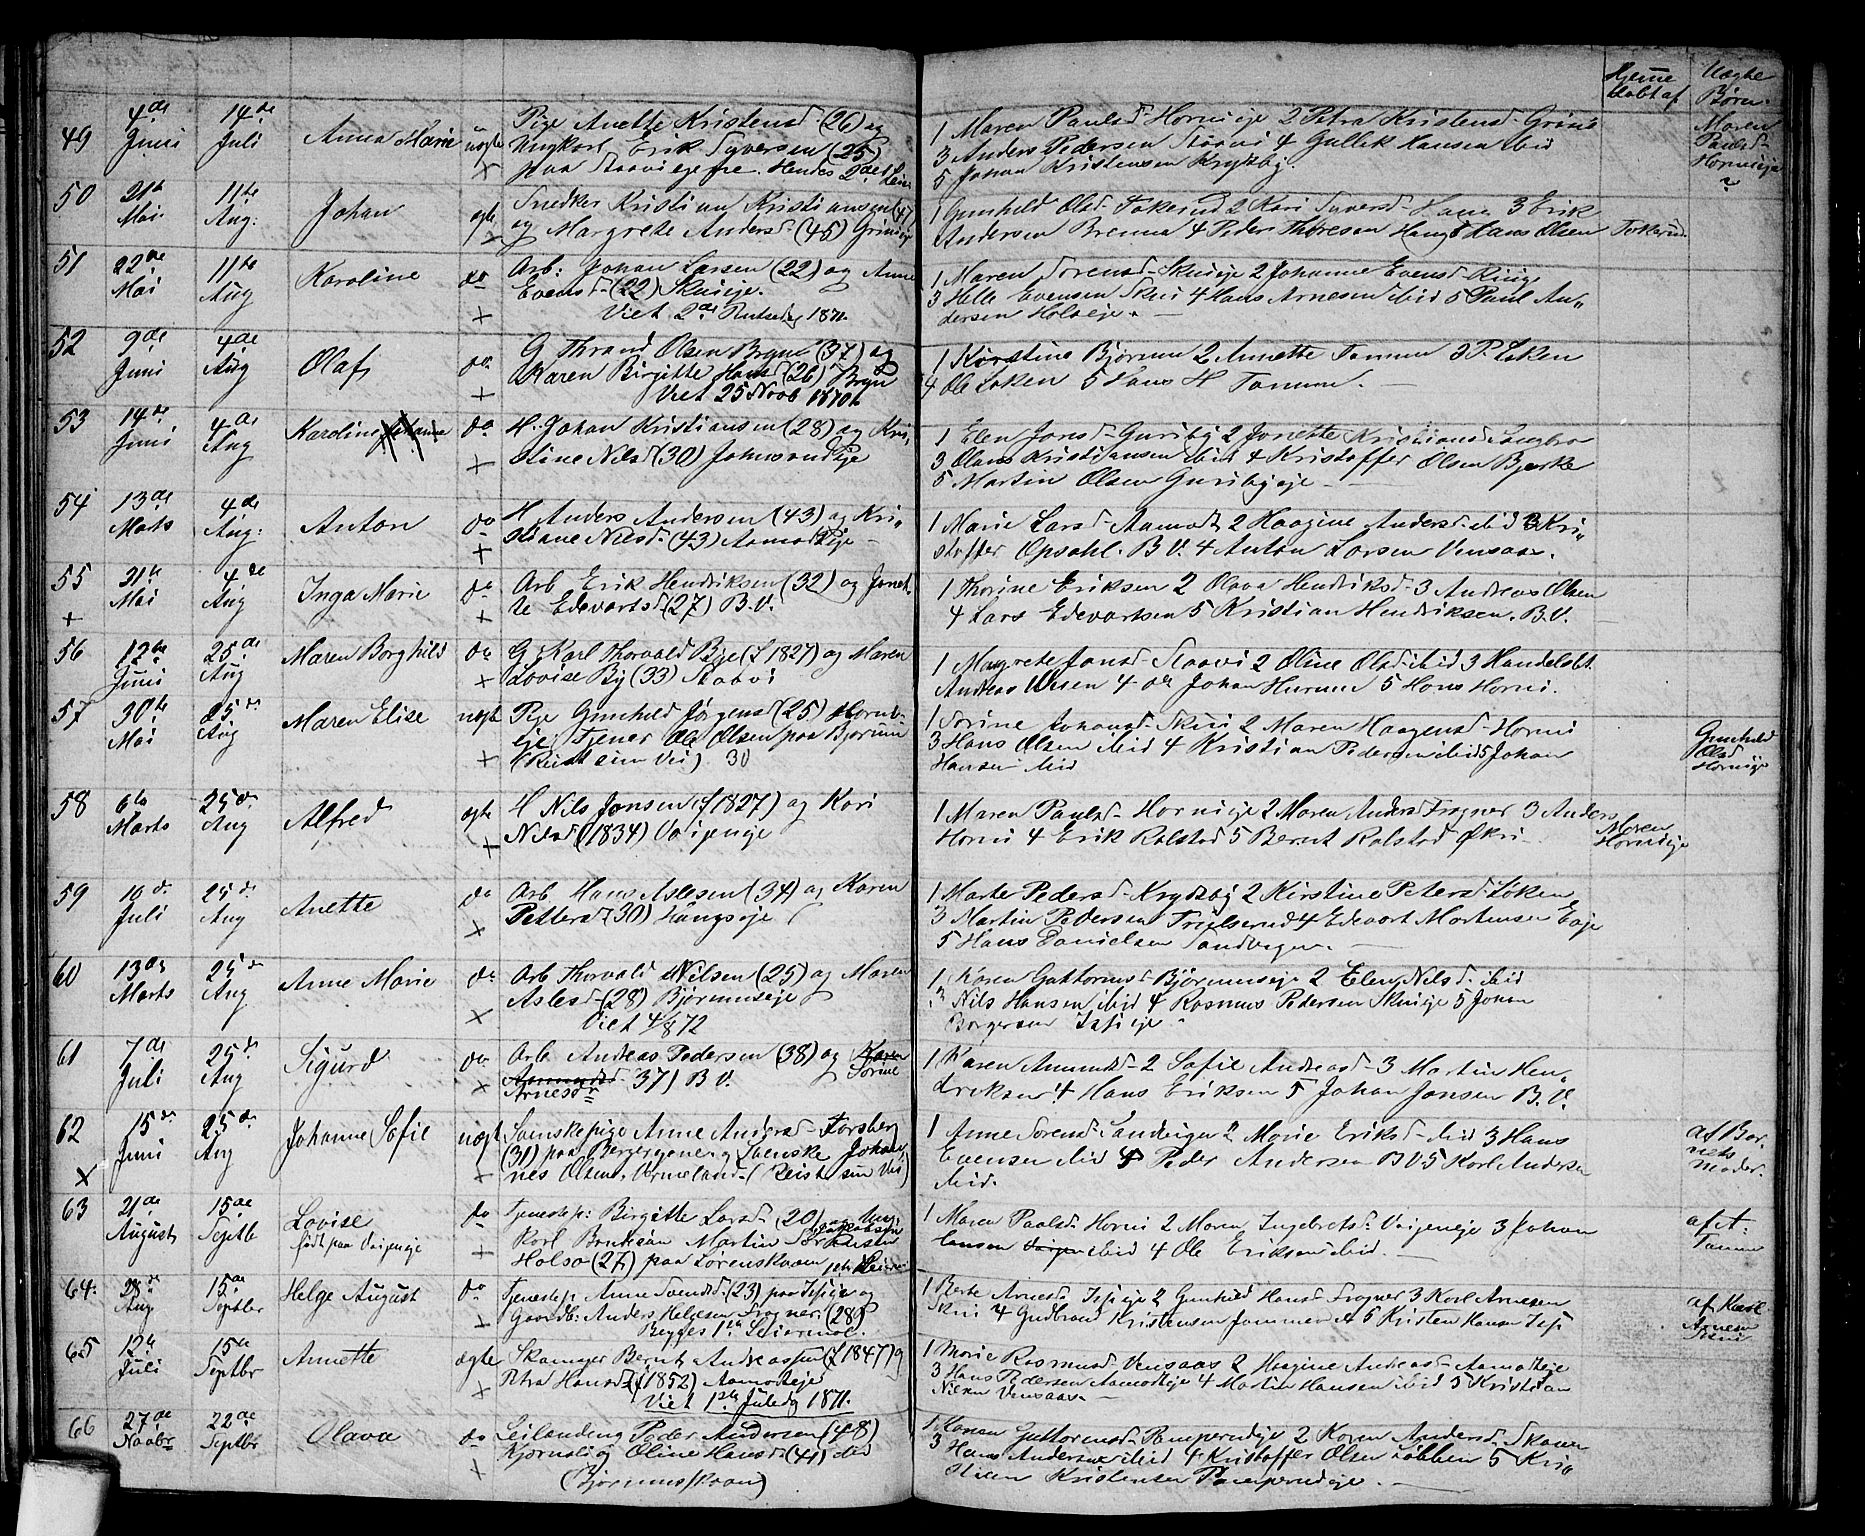 Hjemme Uægte
døbt af Børn.
49 4de Juni 14de Juli Anna Marie uægte Pige Anette Kristensd. (26) og
Ungkarl Erik Syversen (25)
paa Staavieje. Hendes 2det Leier
1 Maren Paulsd Hornieje 2 Petra Kristensd Grinie
3 Anders Pedersen Staavi 4 Gullik Hansen ibid
5 Johan Kristensen Krydsby.
Maren Paulsd Hornieje
50 21de Mai 11te Aug: Johan ægte Snedker Kristian Kristiansen (47)
og Margrete Andersd. (45) Grinieje
1 Gunhild Olsd Tokerud 2 Kari Syversd Haug 3 Erik
Andersen Brenna 4 Peder Thoresen Haug 5 Hans Olsen Tokerud.
51 22de Mai 11te Aug Karoline do Arb: Johan Larsen (22) og Anne
Evensd (22) Skuieje.
Viet 2den Pintsedag 1871.
1 Maren Sørensd Skuieje 2 Johanne Evensd Ringi
3 Helle Evensen Skui 4 Hans Arnesen ibid 5 Paul An„
dersen Holseje.
52 9de Juni 4de Aug Olaf do G Thrand Olsen Bryn (37) og
Maren Birgitte Hansd (26) Bryn
Viet 25 Novb 1870.
1 Kirstine Bjørum 2 Annette Tanum 3 P. Løken
4 Ole Løken 5 Hans H Tanum.
53 14de Juni 4de Aug Karoline do H. Johan Kristiansen (28) og Kri„
stine Nilsd (30) Johnsrudeje
1 Elen Jonsd Guriby 2 Jonette Kristiansd Langbro
3 Olaus Kristiansen ibid 4 Kristoffer Olsen Bjerke
5 Martin Olsen Guribyeje
54 13de Marts 4de Aug: Anton do H Anders Andersen (43) og Kri„
stiane Nilsd (43) Aamodteje
1 Marie Larsd Aamodt 2 Haagine Andersd ibid 3 Kri„
stoffer Opsahl. B.V. 4 Anton Larsen Vensaas.
55 31te Mai 4de Aug Inga Marie do Arb Erik Hendriksen (32) og Jonet„
te Edevartsd (27) B.V.
1 Thorine Eriksen 2 Olava Hendriksd 3 Andreas Olsen
4 Lars Edevartsen 5 Kristian Hendriksen. B.V.
56 12te Juni 25de Aug Maren Borghild do G Karl Thorvald Bye (f 1827) og Maren
Lovise By (33) Staavi
1 Margrete Jonsd Staavi 2 Oline Olsd ibid 3 Handelsbt.
Andreas Olsen 4 do Johan Hurum 5 Hans Horni.
57 30te Mai 25de Aug Maren Elise uægte Pige Gunhild Jørgensd (25) Horni-
eje, Tjener Ole Olsen paa Bjørum
(Reist sin Vei) 30
1 Sorine Johansd Skui 2 Maren Haagensd Horni
3 Hans Olsen ibid 4 Kristian Pedersen ibid 5 Johan
Hansen ibid
Gunhild Olsd Hornieje
58 6te Marts 25de Aug Alfred ægte H Nils Jonsen (f 1827) og Kari
Nilsd (1834) Vøieneje
1 Maren Paulsd Hornieje 2 Maren Andersd Frogner 3 Anders
Horni 4 Erik Ralstad 5 Bernt Ralstad Økri
Maren Hornieje
59 10de Juli 25de Aug Anette do Arb Hans Aslesen (34) og Karen
Pettersd (30) Haugseje
1 Marte Pedersd Krydsby 2 Kirstine Petersd Løken
3 Martin Pedersen Trulserud 4 Edevart Mortensen Eeje
5 Hans Danielsen Sandvigen.
60 13de Marts 25de Aug Anne Marie do Arb Thorvald Nilsen (25) og Maren
Aslesd (28) Bjørumseje
Viet 4/8 72
1 Karen Guttormsd Bjørumseje 2 Elen Nilsd ibid
3 Nils Hansen ibid 4 Rasmus Pedersen Skuieje 5 Johan
Borgersen Isieje
61 7de Juli 25de Aug Sigurd do Arb Andreas Pedersen (38) og Karen Sørine
Aamundsd Arnesdr 37) B V.
1 Karen Amundsd 2 Safie Andreasd 3 Martin Hen„
driksen 4 Hans Eriksen 5 Johan Jonsen B.V.
62 15de Juni 25de Aug Johanne Sofie uægt Svenskepige Anne Andersd Forsberg
(31) paa Bergergene og Svenske Johan„
nes Olsen, Vermeland (Reist sin Vei)
1 Anne Sørensd Sandvigen 2 Marie Eriksd ibid 3 Hans
Evensen ibid 4 Peder Andersen B V. 5 Karl Andersen
ibid.
af Bar-
nets
Moder.
63 21de August 15de Septb Lovise
født paa Vøieneje do Tjenestep: Birgitte Larsd (20) og Ung-
karl Martin
Holso (27) paa Lørenskoven
1 Maren Paulsd Horni 2 Maren Ingebretsd Vøieneje 3 Johan
Hansen ibid 4 Ole Eriksen ibid.
af A.
Tanum
64. 28de Aug 15de Septbr Helge August do Tjenestep: Anne Svendsd (23) paa Isieje og
Gaardb: Anders Helgesen Frogner (28)
Begges 1ste Leiermaal.
1 Berte Arnesd Isieje 2 Gunhild Hansd Frogner 3 Karl Arnesen
Skui 4 Gudbrand Kristensen Jammer 5 Kristen Hansen Isi
af Karl
Arnesen
Skui
65 12te Juli 15de Septbr Annette ægte Skomager Bernt Andreassen (f 1847) og
Petra Hansd (f 1852) Aamodteje
Viet 1ste Juledag 1871.
1 Marie Rasmusd Vensaas 2 Haagine Andreasd Aamodteje
3 Hans Pedersen Aamodteje 4 Martin Hansen ibid 5 Kristian
Nilsen Vensaas
66 27de Novbr 22de Septbr Olava do Leilænding Peder Andersen (48)
Kjørnslig Oline Hansd (41) ibid
(Bjørumsskoven)
1 Karen Guttormsd Pamperudeje 2 Karen Andersd Skaren
3 Hans Andersen ibid 4 Kristoffer Olsen Løbben 5 Kri„
stian Kristensen Pamperudeje.